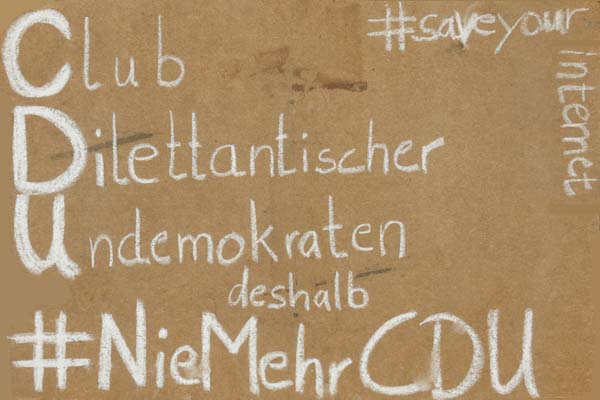 #saveyour
internet
Club
Dilettantischer
Undemokraten
deshalb
#NieMehrCDU